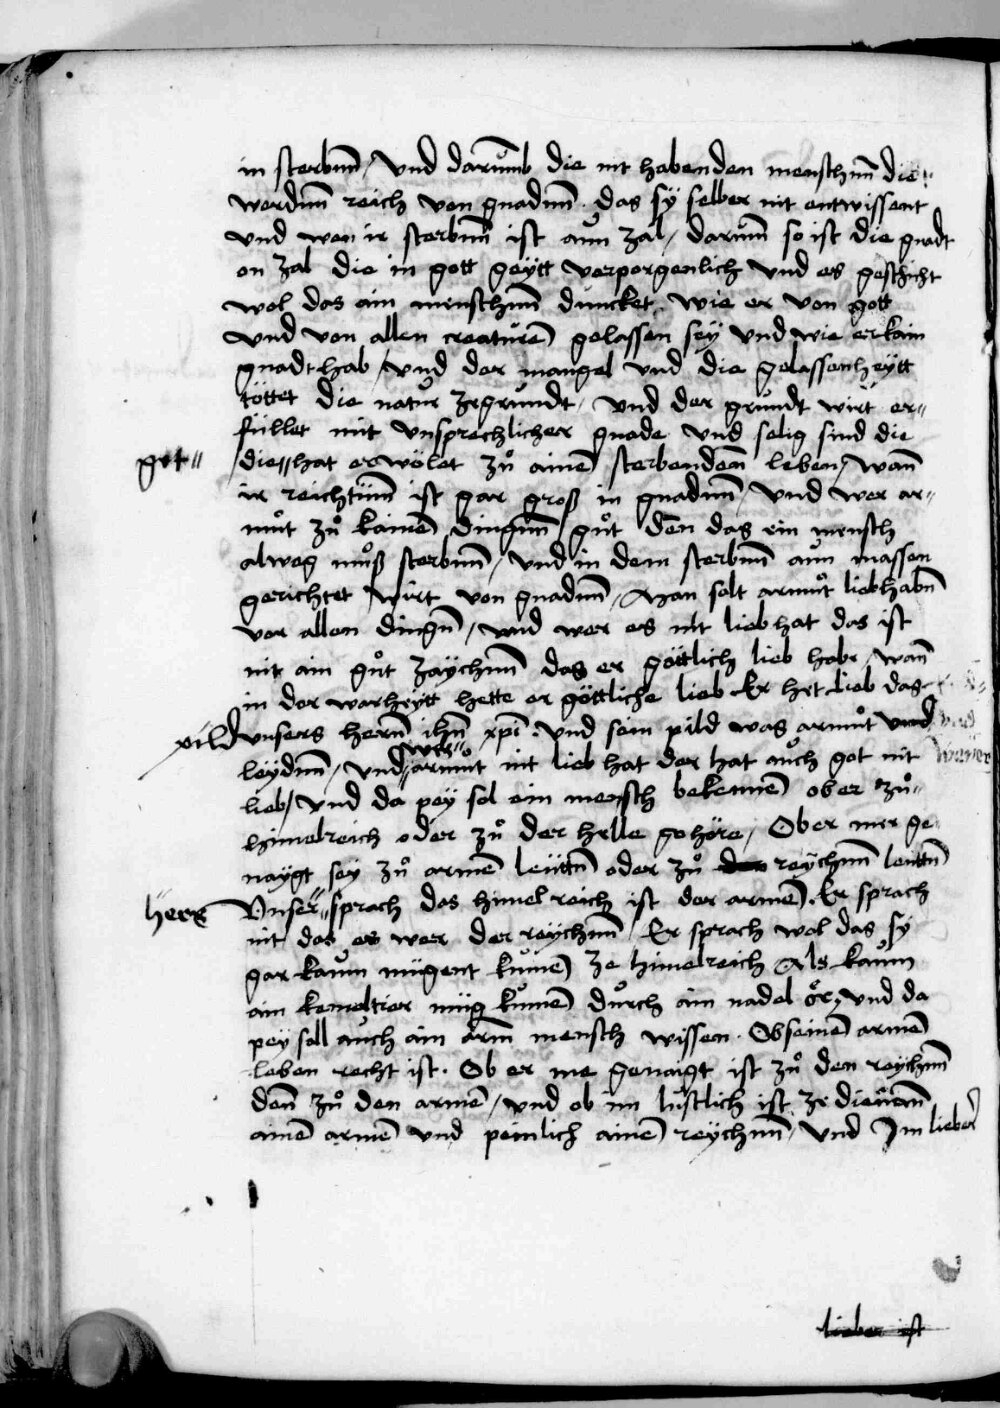 in sterbnn / Vnd darumb die nit habenden menschnn die
werdnn reich von gnadnn · das sÿ selber nit entwissent
Vnd wen ir sterbnn ist aun zal / darumb so ist die gnadt
on zal die in gott geÿtt verporgenlich Vnd es geschicht
wol das ain menschnn duncket wie er von gott
Vnd von allen creaturen gelassen seÿ Vnd wie er kain
gnadt hab / Vnd der mangel Vnd die gelassenheÿtt
töttet die natur zegrundt / Vnd der grundt wirt er〃
füllet mit Vnsprechlicher gnade Vnd selig sind die
got〃 / die〃hat erwölet zů ainem sterbendenn leben / wann
ir reichtumm ist gar groß in gnadnn / Vnd wer ar〃
můt zů kainen dingnn gůt den das ein mensch
alweg můß sterbnn / Vnd in dem sterbnn aun massen
gerichtet wirt von gnadnn / Man solt armůt liebhabn
vor allen dingn / Vnd wer es nit lieb hat das ist
nit ain gůt zaÿchnn das er göttlich lieb habe / wann
in der warheÿtt hette er göttliche lieb Er het lieb das
pild Vnsers hernn ihu xpi · Vnd sein pild was armůt Vnd
leÿdnn / Vnd〃armůt nit lieb hat der hat auch got nit
wer〃
lieb / Vnd da peÿ sol ein mensch bekennen ob er zů〃
himelreich oder zů der helle gehöre / Ob er mer ge
naÿgt seÿ zů armen leüttn oder zů den reÿchnn leuttn
herr Vnser〃sprach das himelreich ist der armen · Er sprach
nit das es wer der reÿchnn / Er sprach wol das sÿ
gar kaum mügent kumen ze himelreich Als kaum
ain kemeltier müg kumen durch ain nadel ör / Vnd da
peÿ soll auch ain arm mensch wissen · Ob seinen armen
leben recht ist · Ob er me genaigt ist zů den reÿchnn
denn zů den armen / Vnd ob im lustlich ist ze dienenn
ainen armen Vnd peinlich ainen reÿchnn / Vnd Im lieber
lieber ist